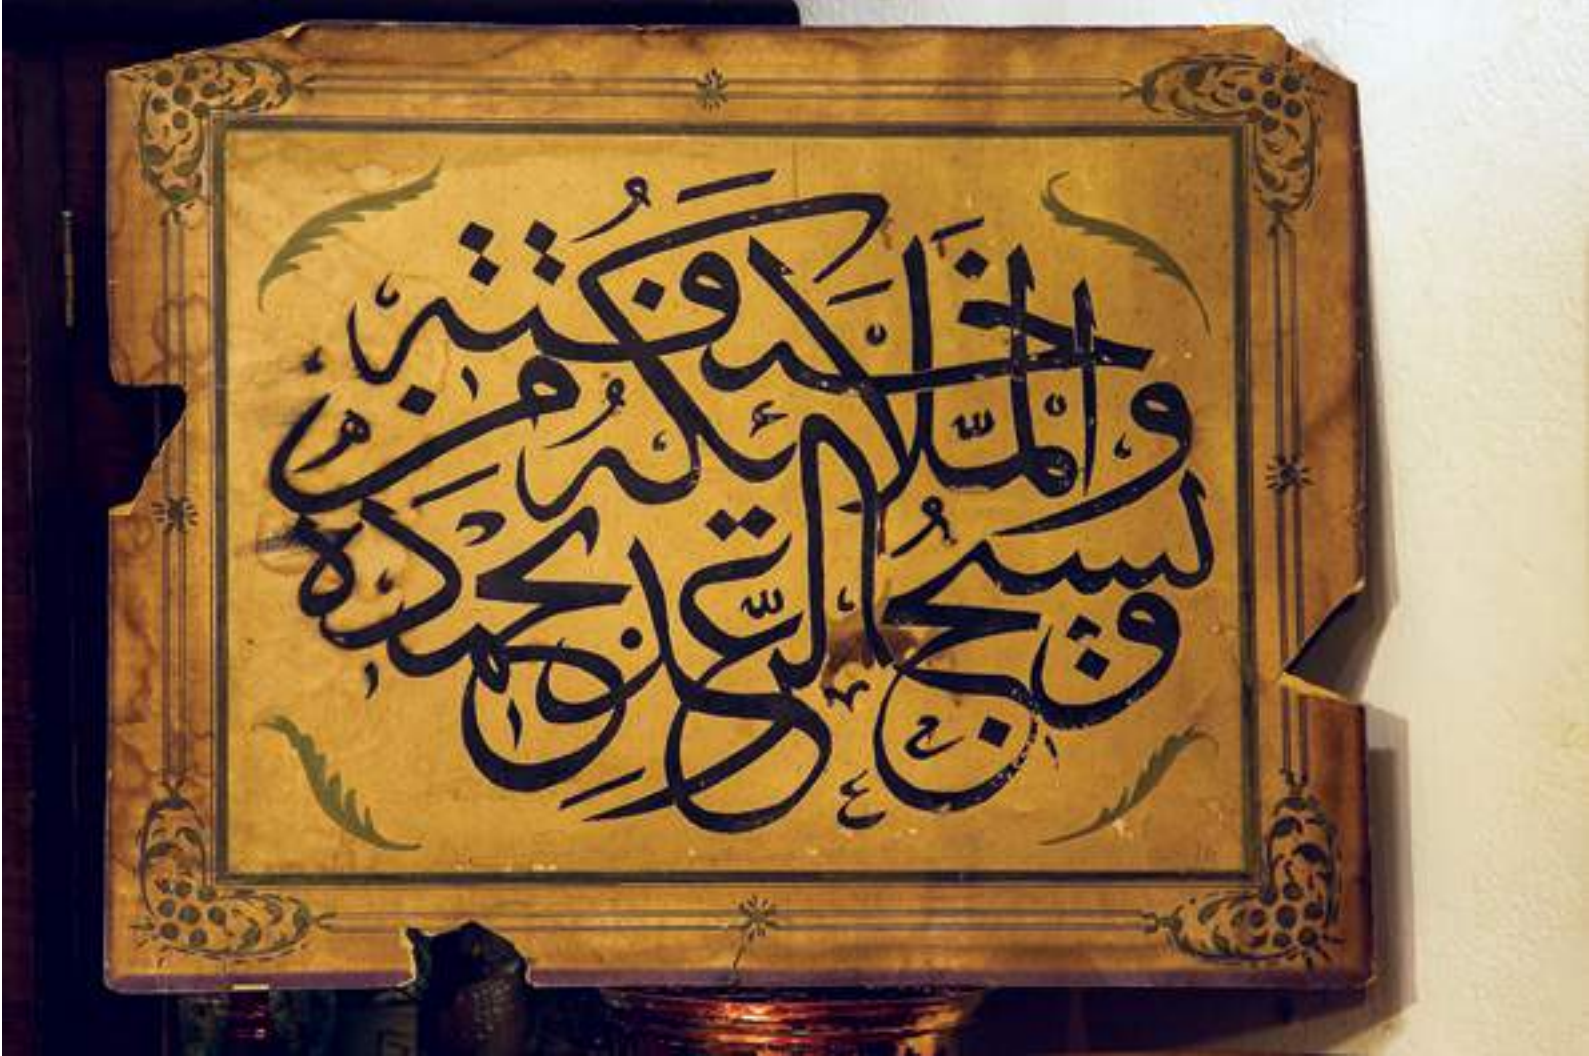 ويسبح الرعد بحمده
والملائكة من خيفته